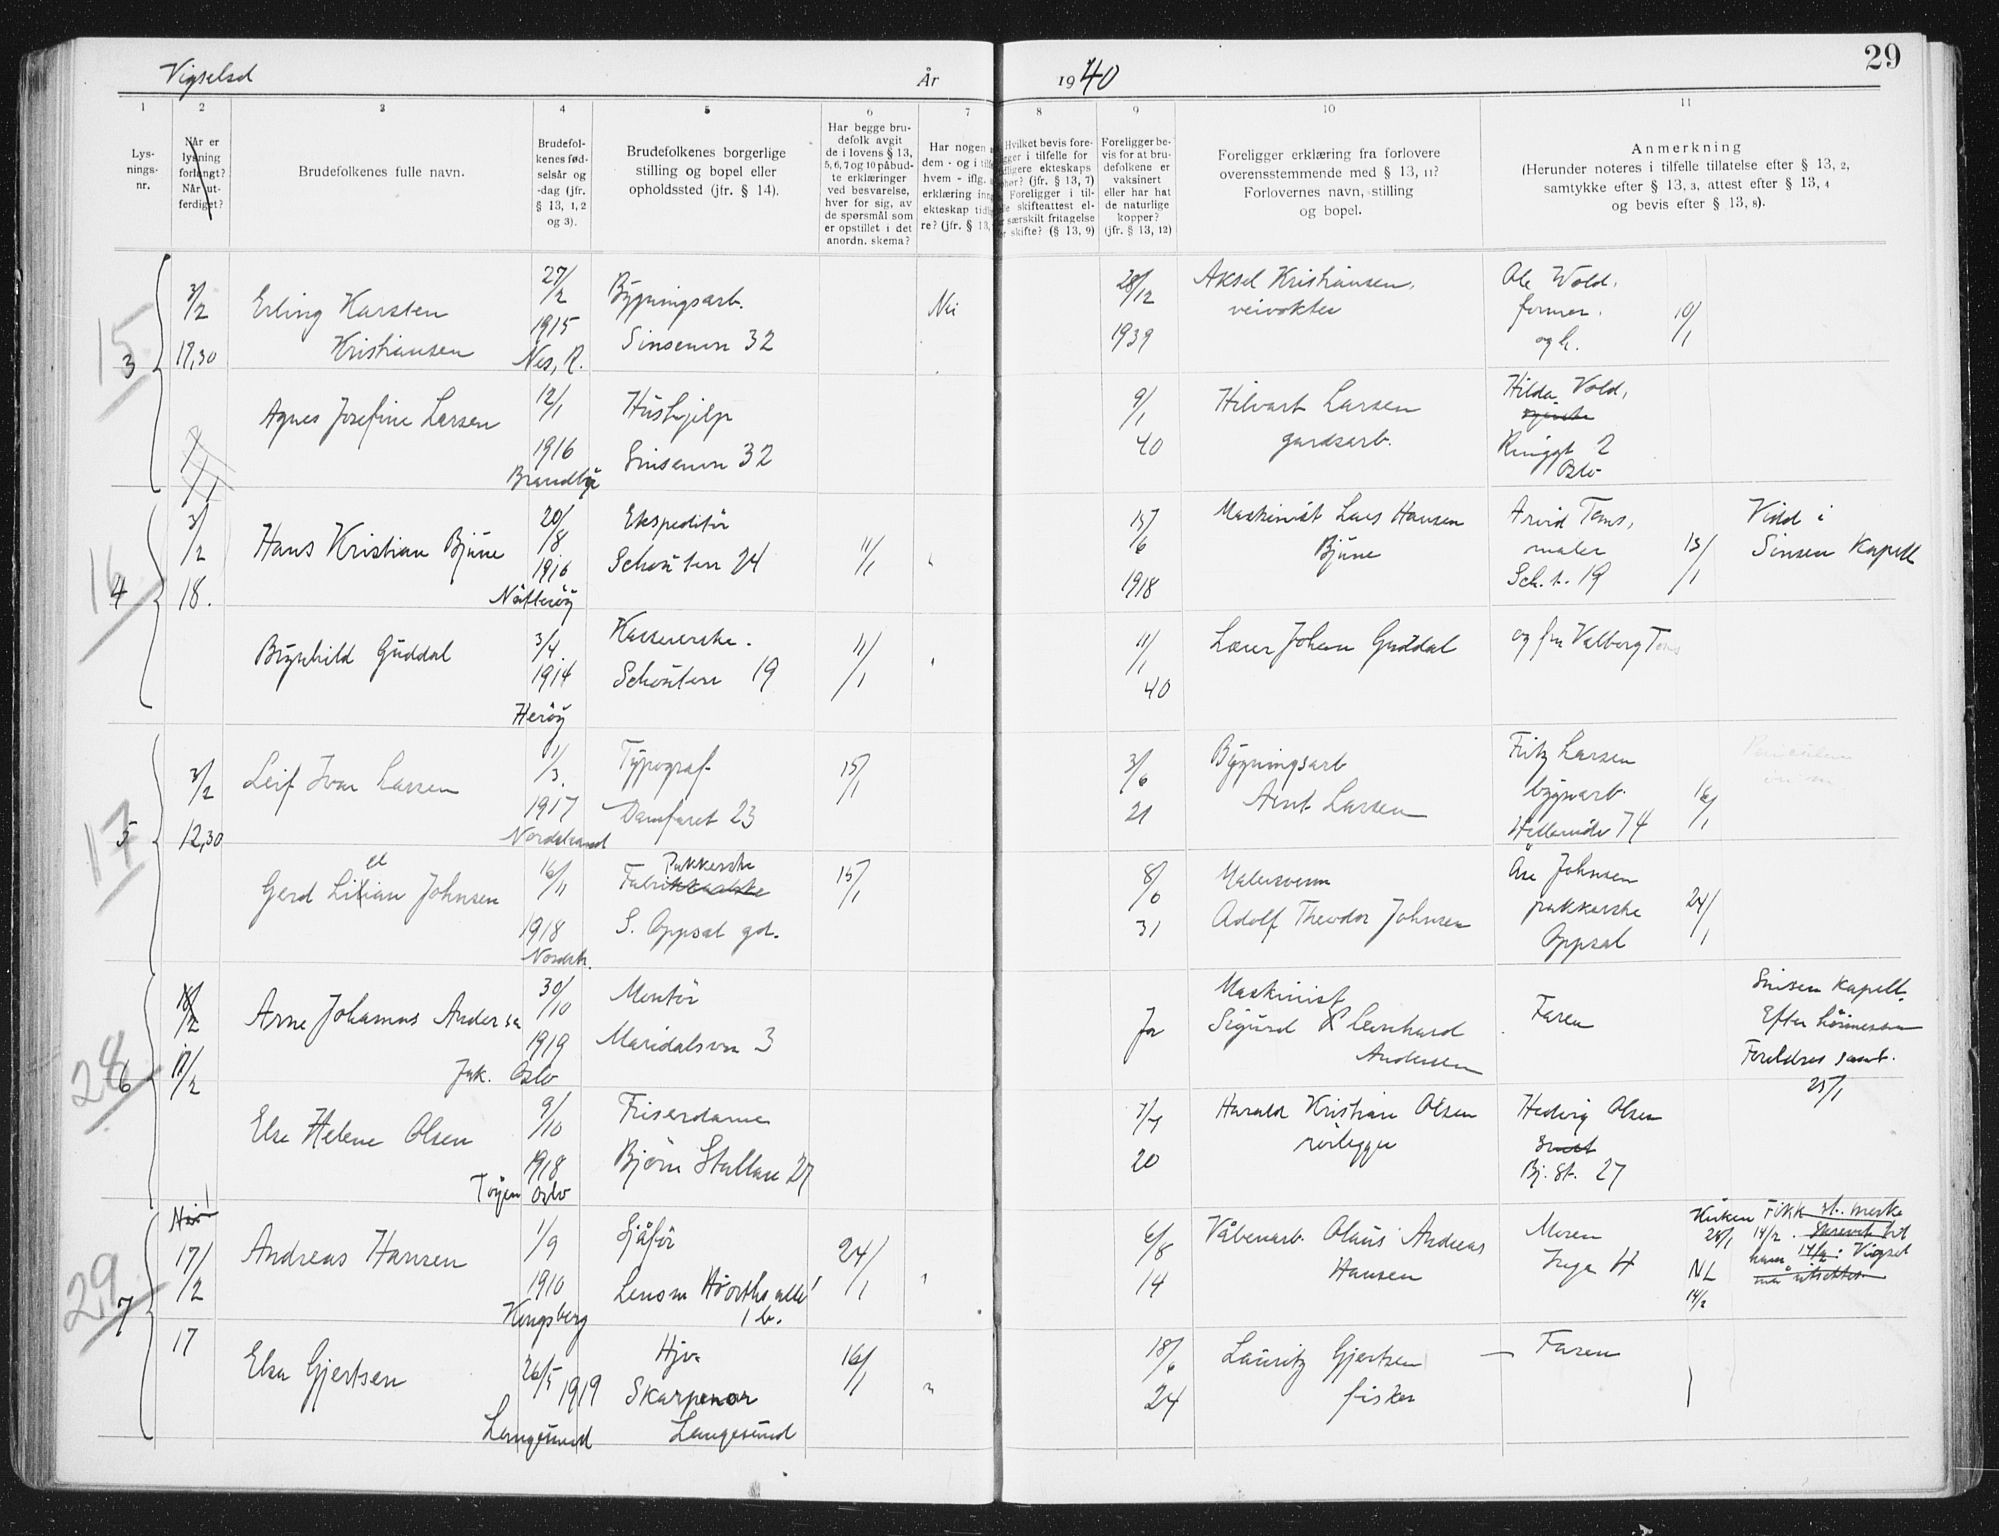 29
Vigselsd
År
1940
1
2
3
4
5
6
7
8
9
10
11
Lys-
nings-
nr.
Når er
lysning
forlangt?
Når ut-
ferdiget?
Brudefolkenes fulle navn.
Brudefol-
kenes fød-
selsår og
-dag (jfr.
§ 13, 1, 2
og 3).
Brudefolkenes borgerlige
stilling og bopel eller
opholdssted (jfr. § 14).
Har begge bru-
defolk avgit
de i lovens § 13,
5, 6, 7 og 10 påbud-
te erklæringer
ved besvarelse,
hver for sig, av
de spørsmål som
er opstillet i det
anordn. skema?
Har nogen
dem - og i
hvem - iflg.
erklæring inn
ekteskap tidl
re? (jfr. § 13,
Hvilket bevis fore-
gger i tilfelle for
dligere ekteskaps
phør? (jfr. § 13, 7)
Foreligger i til-
le skifteattest el-
r særskilt fritagelse
skifte? (§ 13, 9)
Foreligger be-
vis for at bru-
defolkene er
vaksinert
eller har hat
de naturlige
kopper?
(jfr. § 13, 12)
Foreligger erklæring fra forlovere
overensstemmende med § 13, 11?
Forlovernes navn, stilling
og bopel.
Anmerkning
(Herunder noteres i tilfelle tillatelse efter § 13, 2,
samtykke efter § 13, 3, attest efter § 13, 4
og bevis efter § 13, 8).
15
3
3/2
17,30
Erling Karsten
Kristiansen
27/2
1915
Nes, R.
Bygningsarb.
Sinsenvn 32
Nei
28/12
1939
Aksel Kristiansen,
veivokter
Ole Wold,
former.
og h.
10/1
Agnes Josefine Larsen
12/1
1916
Brandbu
Hushjelp
Sinsenvn 32
9/1
40
Hilvart Larsen
gardsarb.
Hilda Vold,
Ringgt 2
Oslo
16
4
3/2
18.
Hans Kristian Bjune
20/8
1916
Nøtterøy
Ekspeditør
Schouterr 24
11/1
"
15/6
1918
Maskinist Lars Hansen
Bjune
Arvid Toms,
maler
Sch. t. 19
13/1
Vidd i
Sinsen Kapell
Brynhild Guddal
3/4
1914
Herøy
Kassererske.
Schouterr 19
11/1
"
11/1
40
Lærer Johan Guddal
og fru Valborg Toms
17
5
3/2
12,30
Leif Ivar Larsen
1/3
1917
Nordstrand
Typograf
Damfaret 23
15/1
3/6
21
Bygningsarb
Arnt Larsen
Fritz Larsen
bygnarb.
74
16/1
Gerd Lillian Johnsen
16/11
1918
Nordstr.
Pakkerske
Fabrikkarbske
S. Oppsal gd.
15/1
8/6
31
Malersvenn
Adolf Theodor Johnsen
Åse Johnsen
pakkerske
Oppsal
24/1
28
6
18/2
17/2
Arne Johannes Andersen
30/10
1919
Jak. Oslo
Montør
Maridalsvn 3
Ja
Maskinist
Sigurd Leonhard
Andersen
Faren
Sinsen Kapell.
Foreldres samt.
25/1
Else Helene Olsen
9/10
1918
Tøyen Oslo
Friserdame
Bjørn Stallare 27
7/4
20
Harald Kristian Olsen
rørlegger
Hedvig Olsen
Bj. St. 27
29
7
17/2
17
Andreas Hansen
1/9
1910
Kongsberg
Sjåfør
Lensm Hiorths allé
1 b.
24/1
"
6/8
14
Våbenarb. Olaus Andreas
Hansen
Moren
Inga H
Kirken
28/1
NL
14/2
Fikk st. merke
14/2. Skrevet til
ham 14/2: Vigsel
må utsettes
Elsa Gjertsen
26/5 1919
Langesund
Hjv.
Skarpenor
Langesund
16/1
"
18/6
24
Lauritz Gjertsen
fisker
— Faren